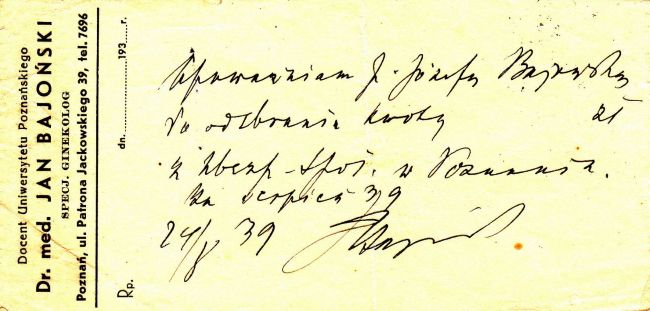 Docent Uniwersytetu Poznańskiego
Dr. med. JAN BAJOŃSKI
SPECJ. GINEKOLOG
Poznań, ul. Patrona Jackowskiego 39, tel. 7696
dn. 193 r.
Rp.
Upoważniam p. Józefę
do odebrania kwoty zł
z Ubezp. Społ. w Poznaniu.
za sierpień 39
39